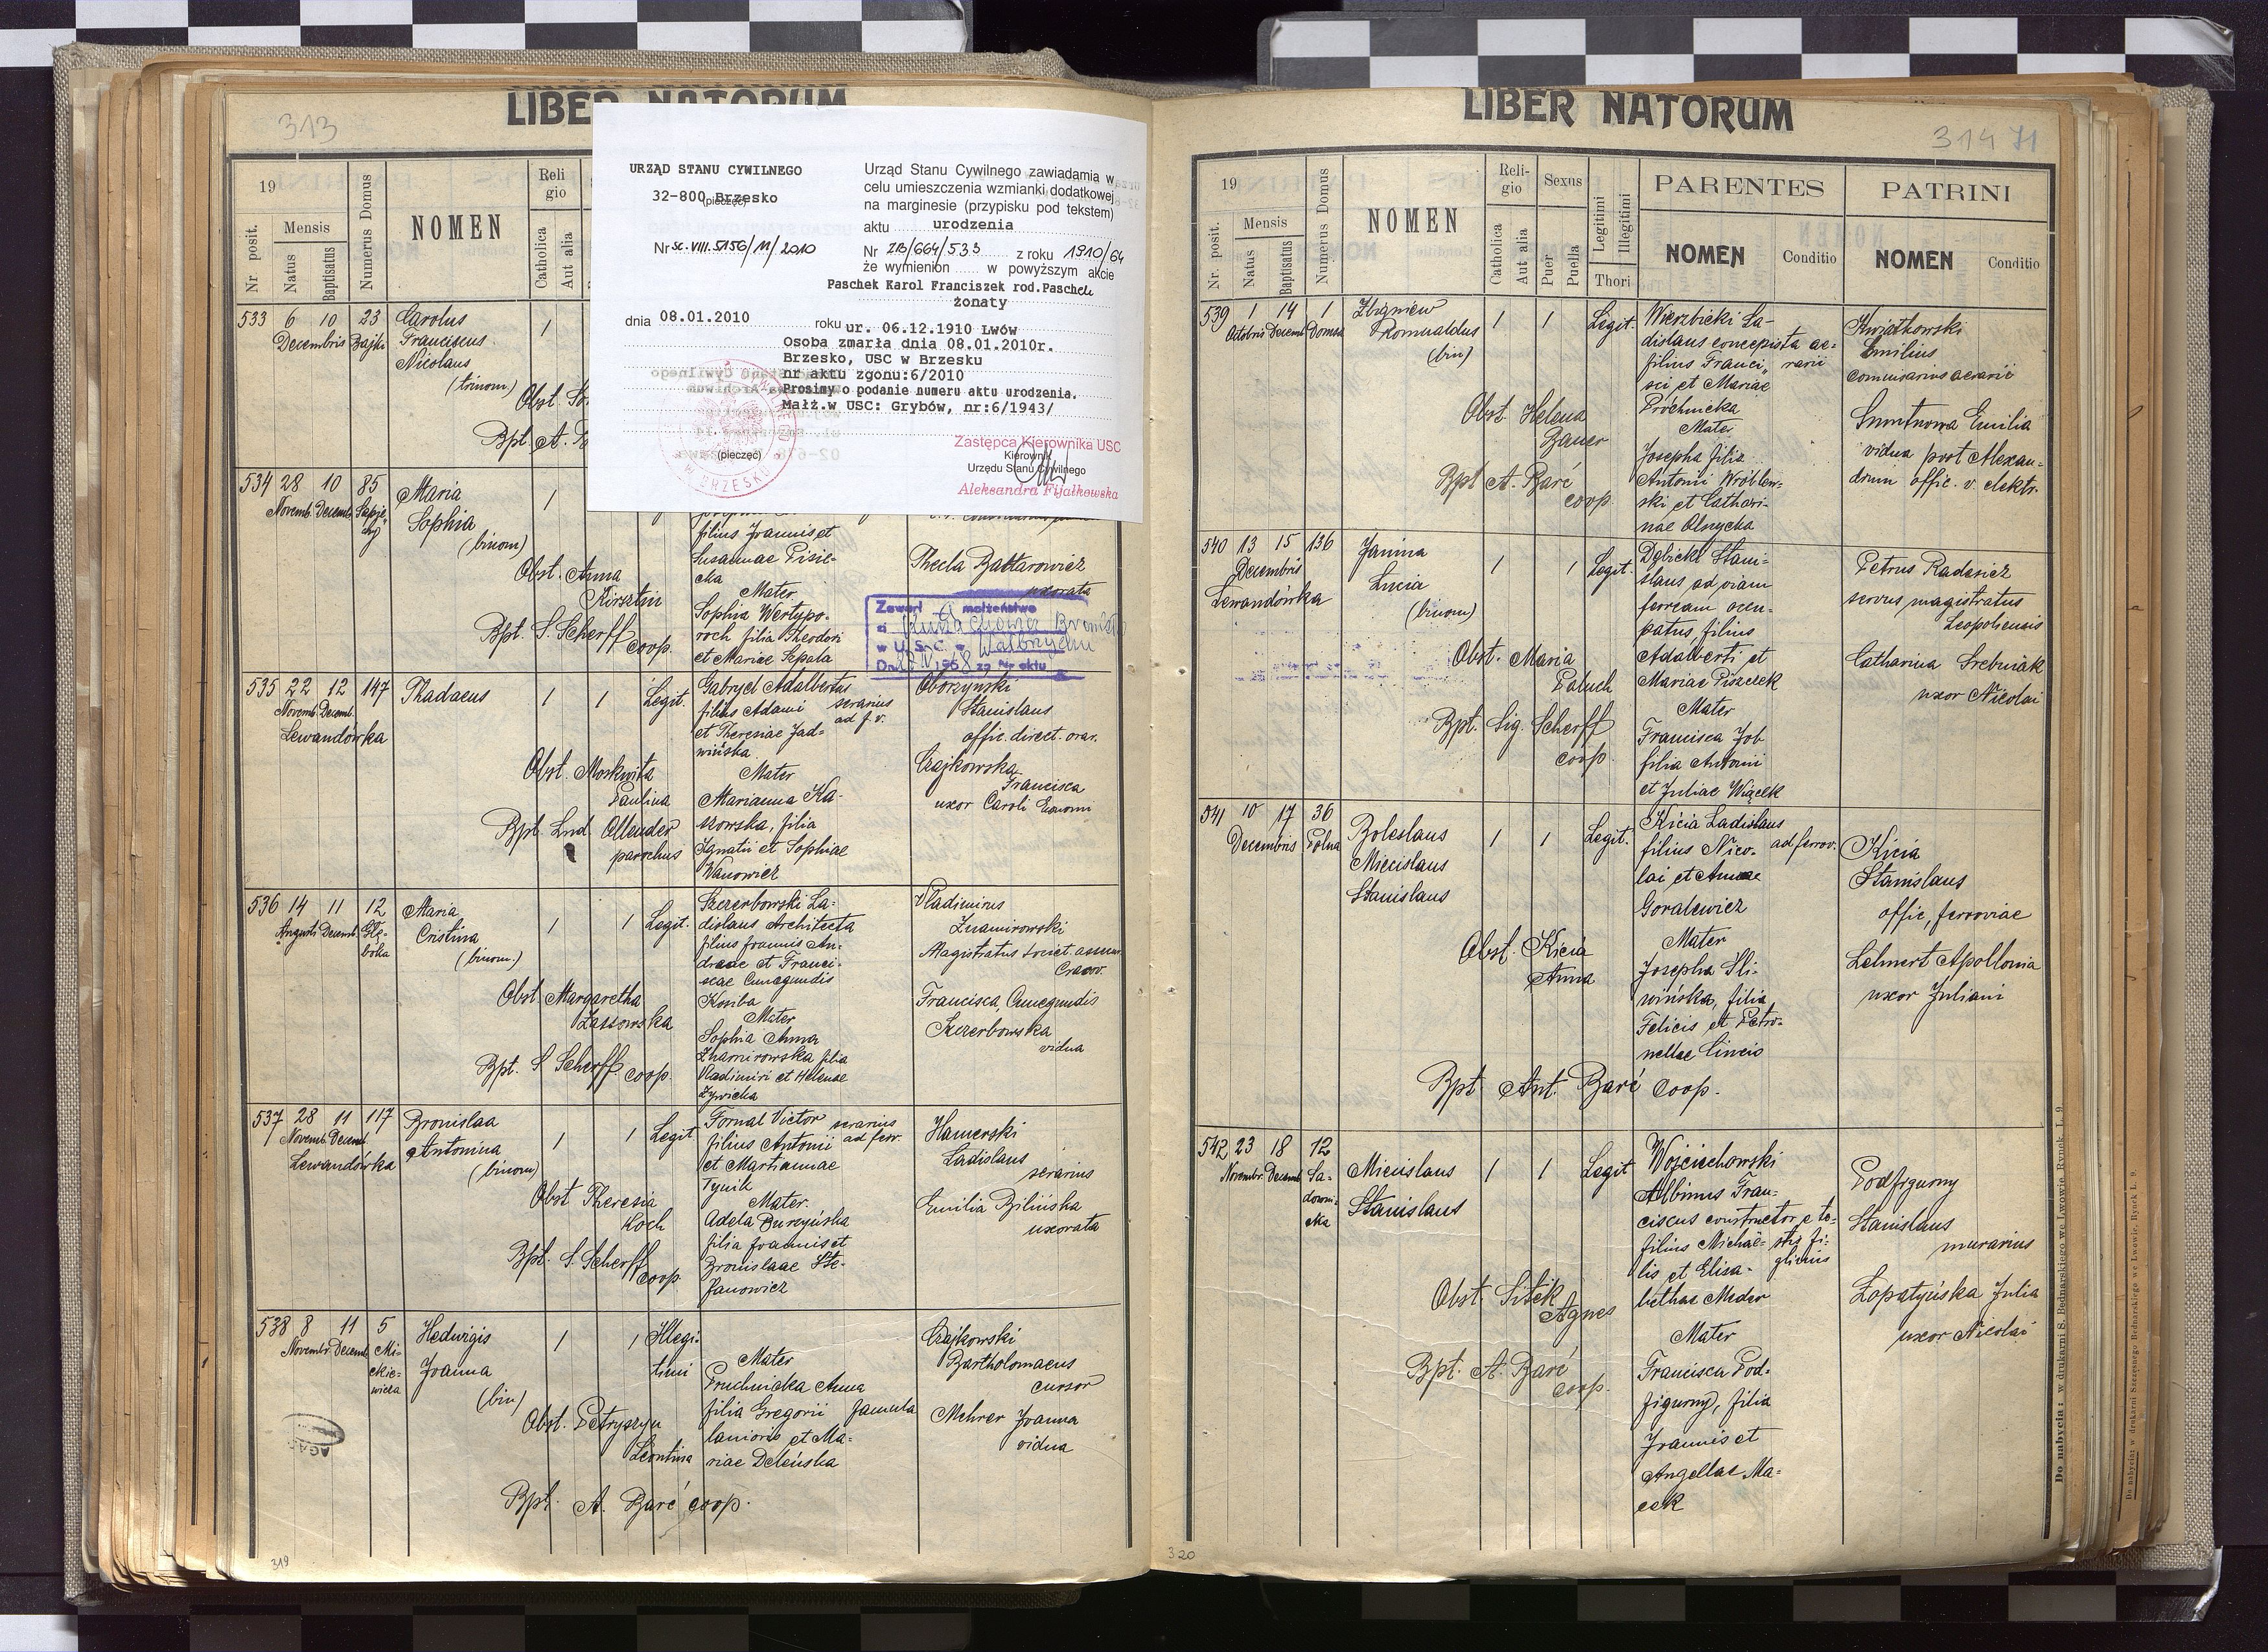 LIBER NATORUM
313
19
Nr. posit.
Mensis
Natus
Baptisatus
Numerus Domus
NOMEN
Religio
Catholica
Aut alia
URZĄD STANU CYWILNEGO
32-800 Brzesko
(pieczęć)
Nr SC.VIII.5156/11/2010
dnia 08.01.2010 roku
Urząd Stanu Cywilnego zawiadamia w
celu umieszczenia wzmianki dodatkowej
na marginesie (przypisku pod tekstem)
aktu urodzenia
Nr 2B/664/533 z roku 1910/64
że wymienion w powyższym akcie
Paschek Karol Franciszek rod.Paschek
żonaty
ur. 06.12.1910 Lwów
Osoba zmarła dnia 08.01.2010r.
Brzesko, USC w Brzesku
nr aktu zgonu:6/2010
Prosimy o podanie numeru aktu urodzenia.
Małż.w USC: Grybów, nr:6/1943/
(pieczęć)
Zastępca Kierownika USC
Kierownik
Urzędu Stanu Cywilnego
Aleksandra Fijałkowska
533 6 10 23
Decembris Bajki
Carolus
Franciscus
Nicolaus
(trinom)
Obst.
Bpt. A.
534 28 10 85
Novemb. Decemb.
Maria
Sophia
(binom)
1
Obst. Anna
Kirsztin
Bpt. S. Scherff
coop.
filius Joannis et
Susannae Pisie-
cka
Mater
Sophia Wertypo-
roch filia Theodori
et Mariae Szpala
Thecla Baltarowicz
uxorata
Zawarł małżeństwo
w U.S.C. w Wałbrzychu
za Nr aktu
535 22 12 147
Novemb. Decemb.
Lewandówka
Thadaeus
1 1 Legit.
Obst. Moskwita
Paulina
Bpt. Lud Ollender
parochus
Gabryel Adalbertus
filius Adami serarius
et Theresiae Jad- ad f. v.
wińska
Mater
Marianna Ka-
szowska, filia
Ignatii et Sophiae
Wanowicz
Oborzyński
Stanislaus
offic. direct.
Czajkowska
Francisca
uxor Caroli
536 14 11 12
Augusti Decemb. Głę-
boka
Maria
Cristina
(binom.)
1 1 Legit.
Obst. Margaretha
Zassowska
Bpt. S Scherff coop.
Szczerbowski La-
dislaus Architecta
filius Joannis An-
dreae et Franci-
scae Cunegundis
Kosiba
Mater
Sophia Anna
Znamirowska filia
Vladimiri et Helenae
Żywicka
Vladimirus
Znamirowski
Magistratus
Cracov.
Francisca, Cunegundis
Szczerbowska
vidua
537 28 11 117
Novemb. Decemb.
Lewandówka
Bronislaa
Antonina
(binom)
1 1 Legit
Obst Theresia
Koch
Bpt. S. Scherff
coop.
Fornal Victor serarius
filius Antonii ad ferr.
et Martiannae
Tynik
Mater.
Adela Burczyńska
filia Joannis et
Bronislaae Ste-
fanowicz
Hamerski
Ladislaus
serarius
Emilia Bilińska
uxorata
538 8 11 5
Novembr. Decemb. Mi-
ckie-
wicza
Hedwigis
Joanna
(bin)
1 1 Illegi-
timi
Obst. Petryszyn
Leontina
Bpt. A. Baré coop.
Mater
Pruchnicka Anna
filia Gregorii famula
lanionis et Ma-
riae Deleńska
Czajkowski
Bartholomaeus
cursor
Mehrer Joanna
vidua
AGAD
319
LIBER NATORUM
314 71
19
Nr. posit.
Mensis
Natus
Baptisatus
Numerus Domus
NOMEN
Religio
Catholica
Aut alia
Sexus
Puer
Puella
Legitimi
Illegitimi
Thori
PARENTES
NOMEN
Conditio
PATRINI
NOMEN
Conditio
539 1 14 1
Octobris Decemb. Domsa
Zbigniew
Romualdus
(bin)
1 1 Legit.
Obst. Helena
Bauer
Bpt A. Baré
coop.
Wierzbicki La-
dislaus concepista ae-
filius Franci- rarii
sci et Mariae
Próchnicka
Mater
Josepha filia
Antonii Wróblew-
ski et Cathari-
nae Olszycka
Kwiatkowski
Emilius
comisarius aerarii
Smutnowa Emilia
vidua post Alexan-
drum offic. v. elektr.
540 13 15 136
Decembris
Lewandówka
Janina
Lucia
(binom)
1 1 Legit.
Obst. Maria
Paluch
Bpt. Sig. Scherff
coop.
Dębicki Stani-
slaus ad viam
ferream occu-
patus, filius
Adalberti et
Mariae Piszczek
Mater
Francisca Job
filia Antonii
et Juliae Wiącek
Petrus Radesicz
servus magistratus
Leopoliensis
Catharina Srebniak
uxor Nicolai
541 10 17 36
Decembris Polna
Boleslaus
Miecislaus
Stanislaus
1 1 Legit.
Obst. Kicia
Anna
Bpt Ant. Baré coop.
Kicia Ladislaus
filius Nico- ad ferrov.
lai et Annae
Goralewicz
Mater
Josepha Śli-
wińska, filia
Felicis et Petro-
nellae Cincio
Kicia
Stanislaus
offic. ferroviae
Lehnert Apollonia
uxor Juliani
542 23 18 12
Novembr. Decemb. Sa-
downi-
cka
Miecislaus
Stanislaus
1 1 Legit
Obst. Sitek
Agnes
Bpt. A. Baré
coop.
Wojciechowski
Albinus Fran-
ciscus constructor
filius Michae-
lis et Elisa-
bethae Meder
Mater
Francisca Pod-
figurny, filia
Joannis et
Angellae Ma-
cek
Podfigurny
Stanislaus
murarius
Łopatyńska Julia
uxor Nicolai
320
Do nabycia: w drukarni S. Bednarskiego we Lwowie Rynek L. 9.
Do nabycia: w drukarni Szczęsnego Bednarskiego we Lwowie, Rynek L. 9.